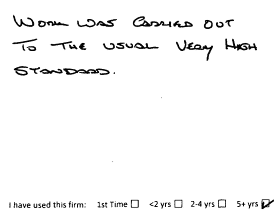 WORK WAS CARRIED OUT
TO THE USUAL VERY HIGH
STANDARD.
I have used this firm: 1st Time ☐ <2 yrs ☐ 2-4 yrs ☐ 5+ yrs ☑